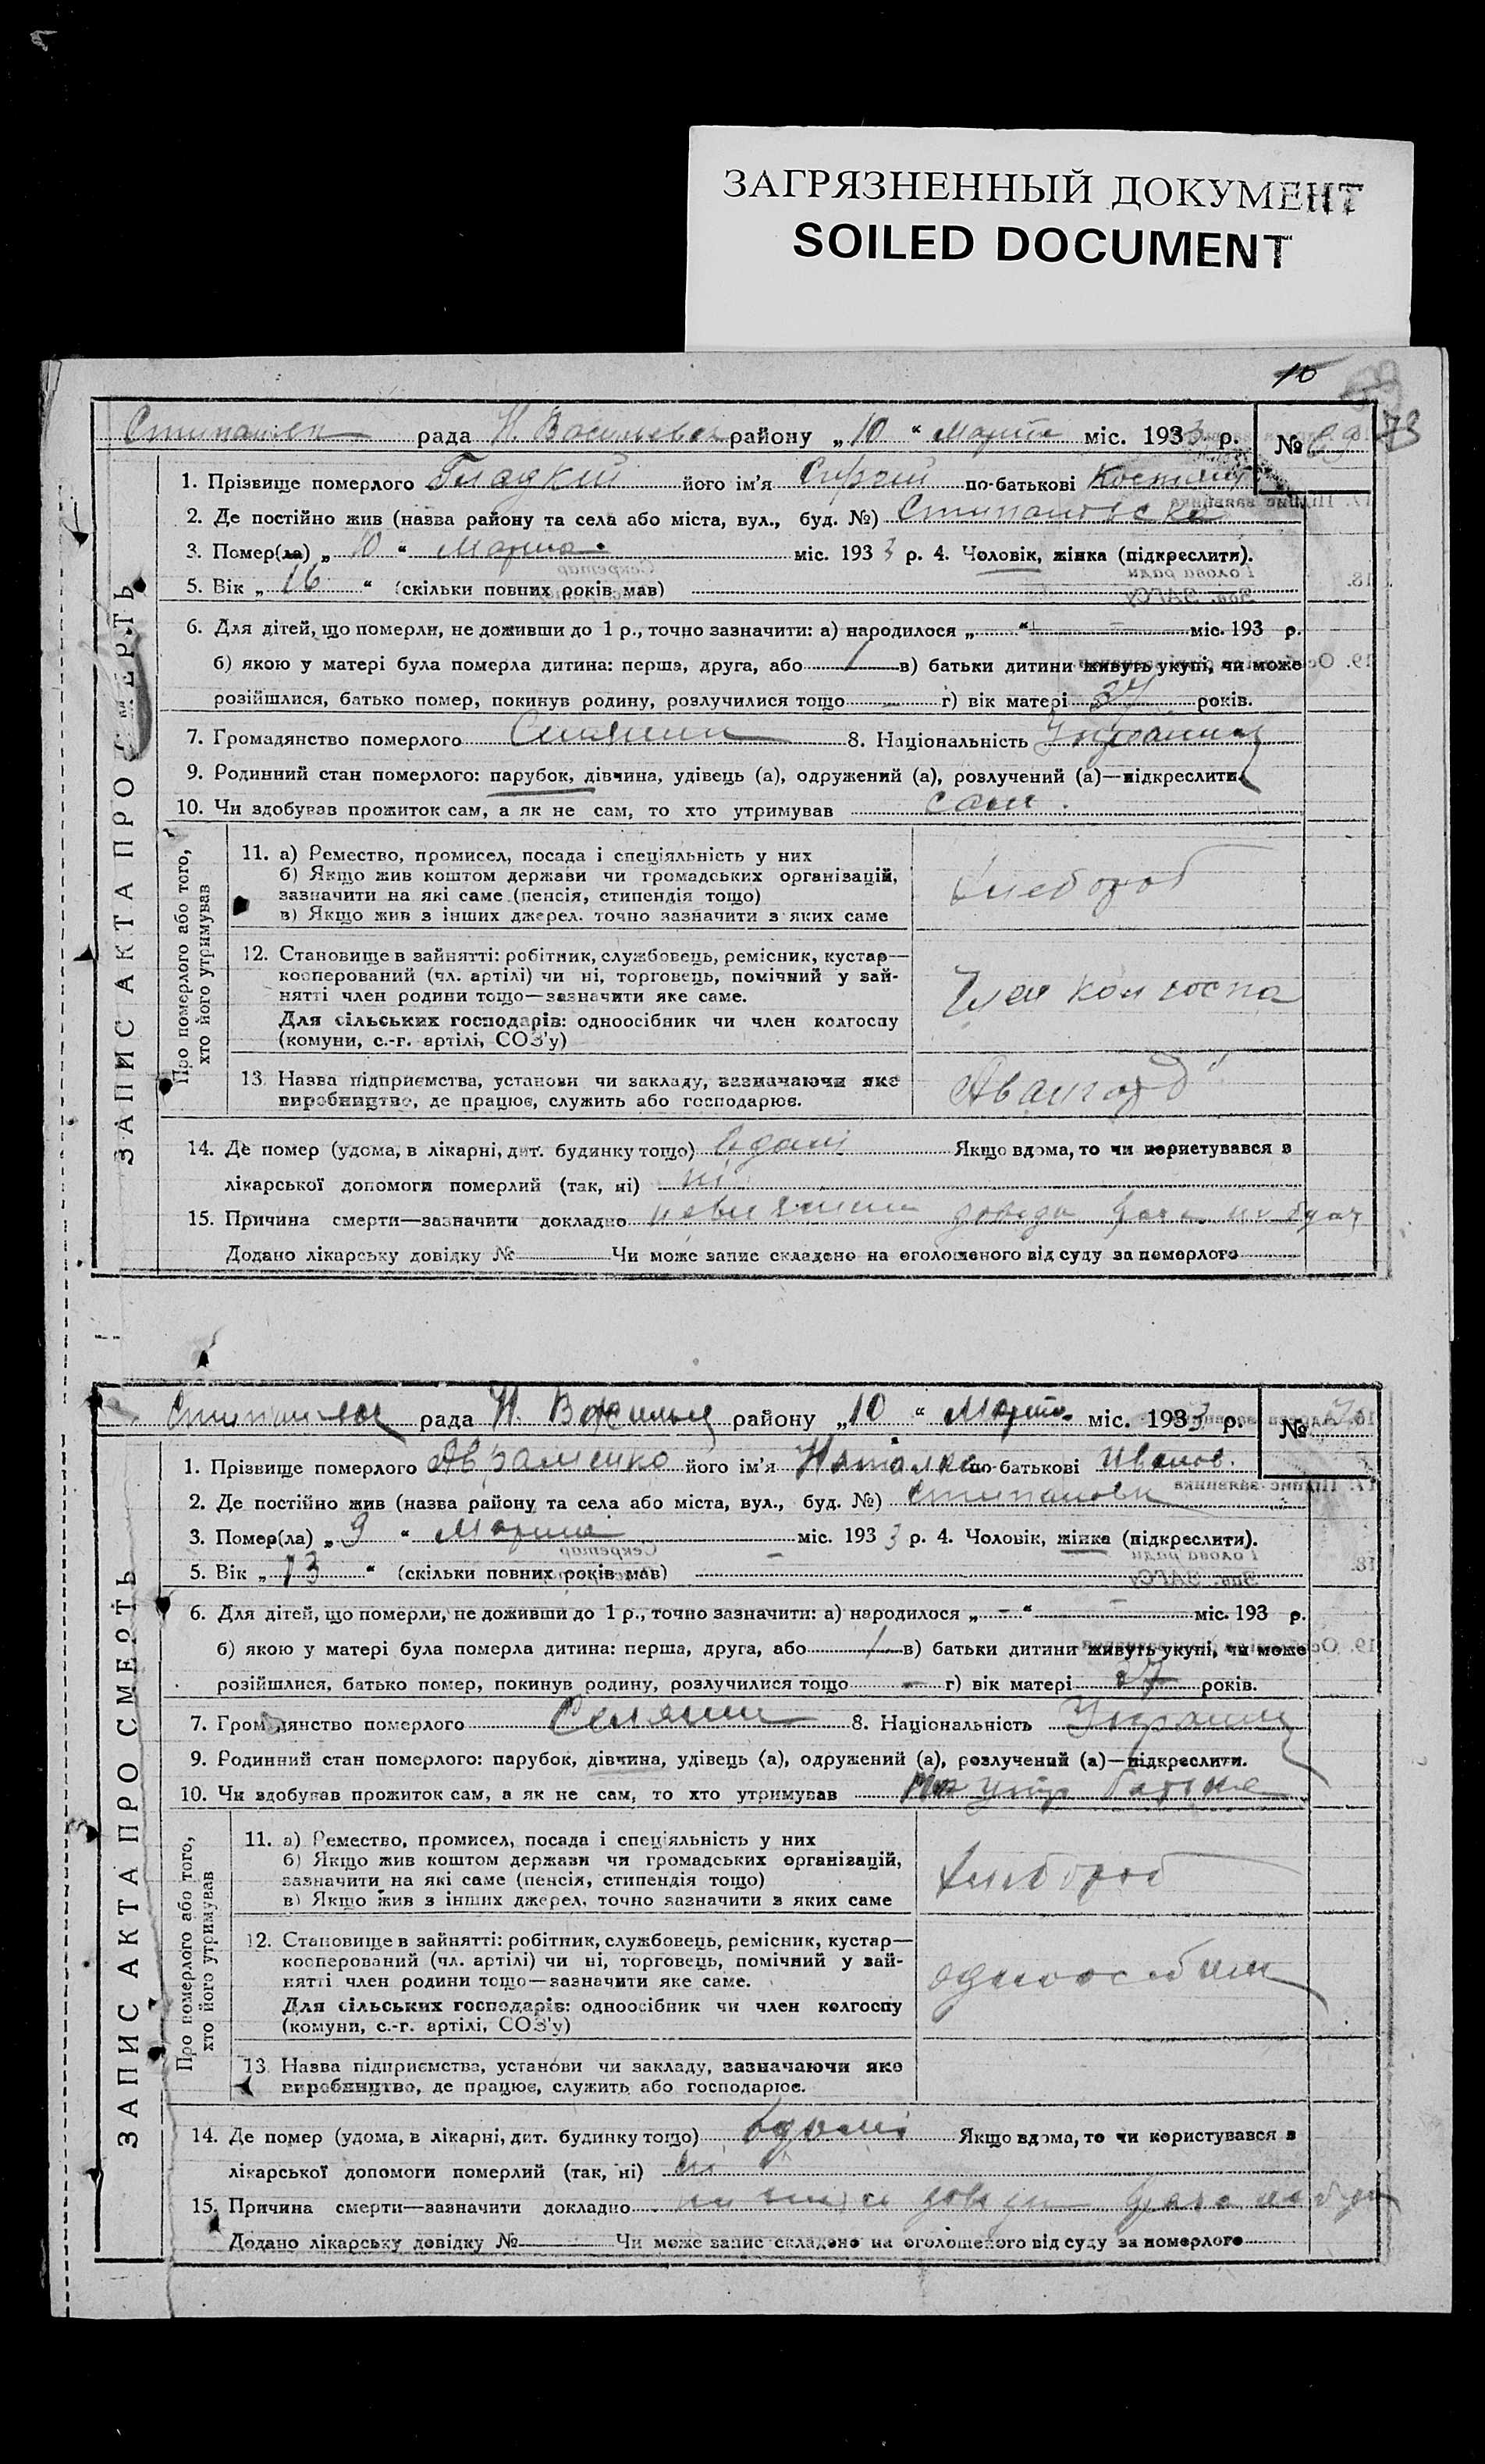 ЗАГРЯЗНЕННЫЙ ДОКУМЕНТ
SOILED DOCUMENT
10
73
рада Н. Василевск району „10“ Марта міс. 1933 р. № 69
ЗАПИС АКТА ПРО СМЕРТЬ
1. Прізвище померлого Гладкий його ім’я Сиргій по-батькові
2. Де постійно жив (назва району та села або міста, вул., буд. №) Стипановка
3. Помер(ла) „10“ Марта міс. 1933 р. 4. Чоловік, жінка (підкреслити).
5. Вік „16“ (скільки повних років мав)
6. Для дітей, що померли, не доживши до 1 р., точно зазначити: а) народилося „ “ — міс. 193 р.
б) якою у матері була померла дитина: перша, друга, або в) батьки дитини живуть укупі, чи може
розійшлися, батько помер, покинув родину, розлучилися тощо — г) вік матері 37 років.
7. Громадянство померлого Силянин 8. Національність Українец
9. Родинний стан померлого: парубок, дівчина, удівець (а), одружений (а), розлучений (а)—підкреслити.
10. Чи здобував прожиток сам, а як не сам, то хто утримував сам.
Про померлого або того, хто його утримував
11. а) Ремество, промисел, посада і спеціяльність у них
б) Якщо жив коштом держави чи громадських організацій,
зазначити на які саме (пенсія, стипендія тощо)
в) Якщо жив з інших джерел, точно зазначити з яких саме
хлебороб
12. Становище в зайнятті: робітник, службовець, ремісник, кустар—
кооперований (чл. артілі) чи ні, торговець, помічний у зай-
нятті член родини тощо—зазначити яке саме.
Для сільських господарів: одноосібник чи член колгоспу
(комуни, с.-г. артілі, СОЗ’у)
Член колгоспа
13. Назва підприємства, установи чи закладу, зазначаючи яке
виробництво, де працює, служить або господарює.
Авангард“
14. Де помер (удома, в лікарні, дит. будинку тощо) вдомі Якщо вдома, то чи користувався в
лікарської допомоги померлий (так, ні) ні
15. Причина смерти—зазначити докладно
Додано лікарську довідку № — Чи може запис складено на оголошеного від суду за померлого
рада Н. району „10“ Марта міс. 1933 р. №
ЗАПИС АКТА ПРО СМЕРТЬ
1. Прізвище померлого Авраменко його ім’я Наталка по-батькові Иванов.
2. Де постійно жив (назва району та села або міста, вул., буд. №) Стипановк
3. Помер(ла) „9“ Марта міс. 1933 р. 4. Чоловік, жінка (підкреслити).
5. Вік „13“ (скільки повних років мав) —
6. Для дітей, що померли, не доживши до 1 р., точно зазначити: а) народилося „—“ — міс. 193 р.
б) якою у матері була померла дитина: перша, друга, або в) батьки дитини живуть укупі, чи може
розійшлися, батько помер, покинув родину, розлучилися тощо — г) вік матері років.
7. Громадянство померлого Силянин 8. Національність Українец
9. Родинний стан померлого: парубок, дівчина, удівець (а), одружений (а), розлучений (а)—підкреслити.
10. Чи здобував прожиток сам, а як не сам, то хто утримував
Про померлого або того, хто його утримував
11. а) Ремество, промисел, посада і спеціяльність у них
б) Якщо жив коштом держави чи громадських організацій,
зазначити на які саме (пенсія, стипендія тощо)
в) Якщо жив з інших джерел, точно зазначити з яких саме
хлебороб
12. Становище в зайнятті: робітник, службовець, ремісник, кустар—
кооперований (чл. артілі) чи ні, торговець, помічний у зай-
нятті член родини тощо—зазначити яке саме.
Для сільських господарів: одноосібник чи член колгоспу
(комуни, с.-г. артілі, СОЗ’у)
13. Назва підприємства, установи чи закладу, зазначаючи яке
виробництво, де працює, служить або господарює.
14. Де помер (удома, в лікарні, дит. будинку тощо) вдомі Якщо вдома, то чи користувався в
лікарської допомоги померлий (так, ні) ні
15. Причина смерти—зазначити докладно
Додано лікарську довідку № — Чи може запис складено на оголошеного від суду за померлого